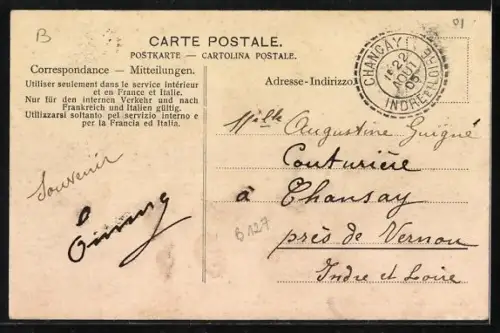 B
pl
CARTE POSTALE.
POSTKARTE — CARTOLINA POSTALE.
Correspondance — Mitteilungen.
Utiliser seulement dans le service intérieur
et en France et Italie.
Nur für den internen Verkehr und nach
Frankreich und Italien gültig.
Utilizzarsi soltanto pel servizio interno e
per la Francia ed Italia.
Adresse-Indirizzo
CHANÇAY
22
AOUT
05
INDRE ET LOIRE
Souvenir
Mlle Augustine Guigné
Couturière
à Chansay
près de Vernou
Indre et Loire
B 127